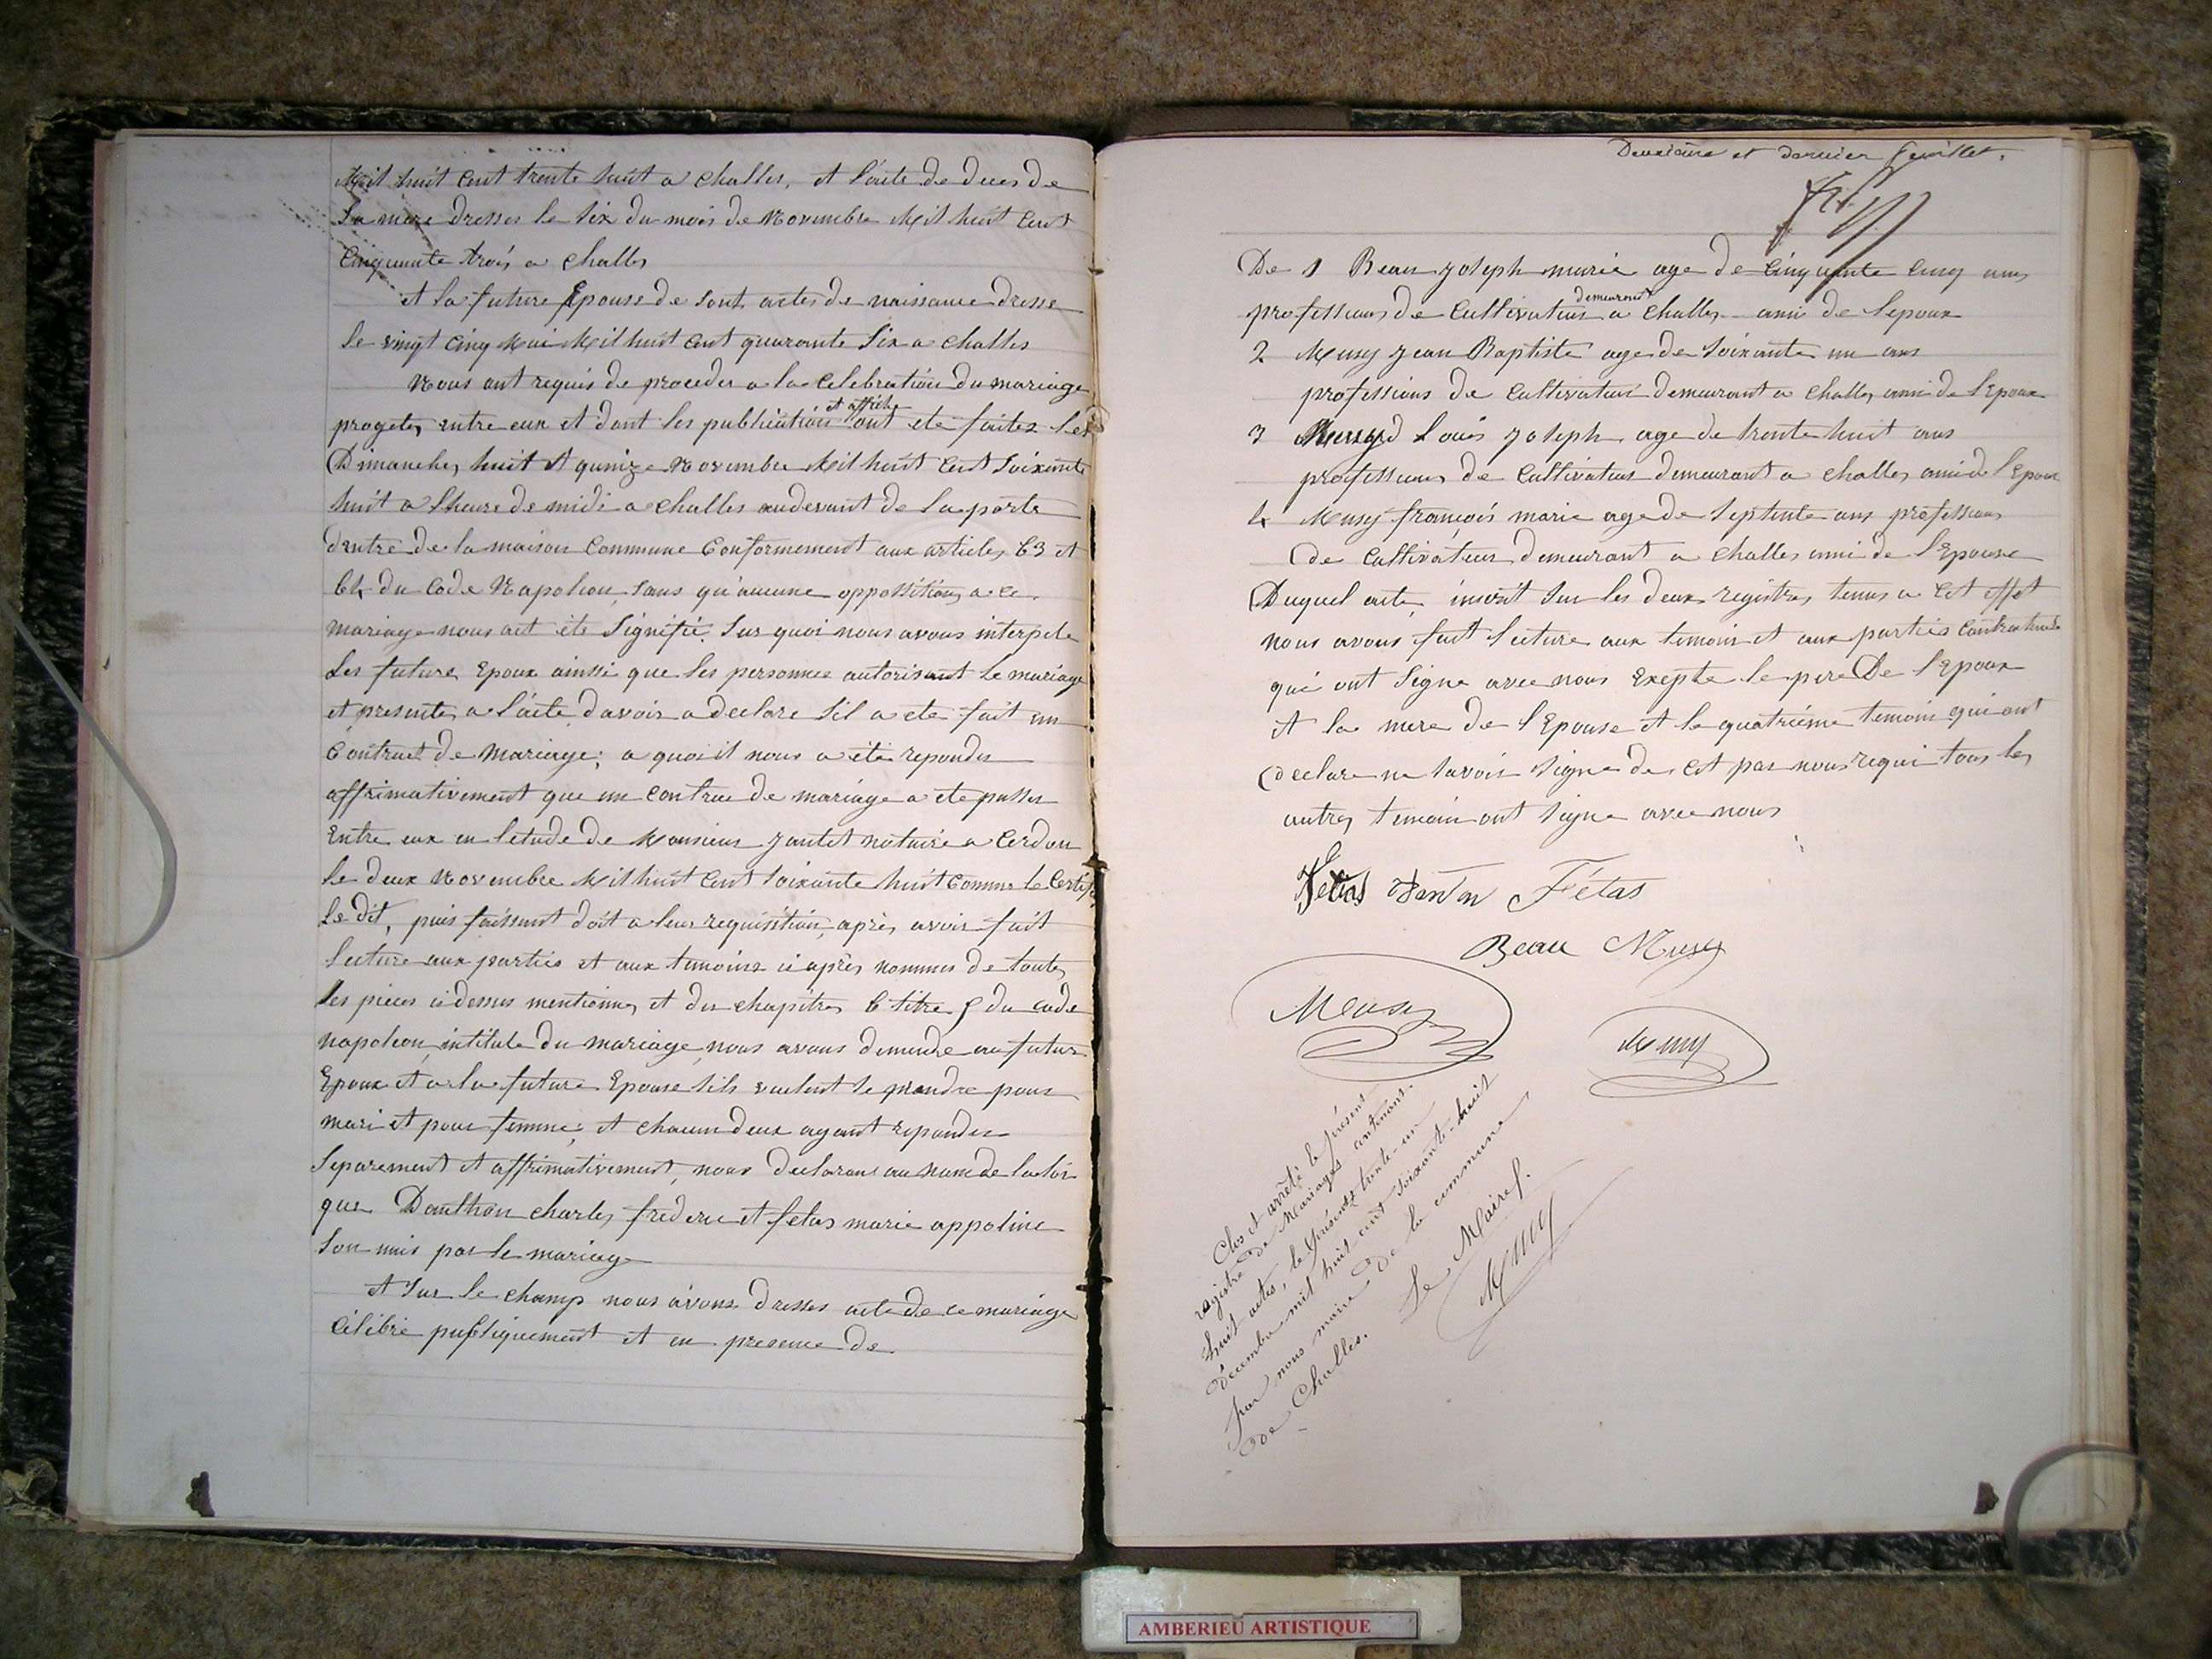 Mil huit cent trente huit a challes, et l'acte de dices de
la mere dresser le six du mois de Novembre Mil huit cent
Cinquante trois a challes
et la future Epouse de sont actes de naissance dresse
le vingt cinq Mai Mil huit cent quarante six a challes
Nous ont requis de proceder a la celebration du mariage
progetes entre eux et dont les publications et affiche ont ete faites les
Dimanches huit et quinze Novembre Mil huit cent soixante
huit a l'heure de midi a challes audevant de la porte
dentre de la maison Commune Conformement aux articles 63 et
64 du Code Napoleon, sans qu'aucune oppossitions a ce
mariage nous ait éte Signifié. Sur quoi nous avons interpele
les future Epoux ainssi que les personnes autorisant le mariage
et presentes a l'acte, davoir a declare s'il a ete fait un
Contract de Mariage; a quoi il nous a été repondu
affrimativement que un contrac de mariage a ete passer
Entre eux en letude de Monsieur Jantet notaire a Cerdon
le deux Novembre Mil huit cent soixante huit comme le Certifi
le dit, puis faissant doit a leur requisition, après avoir fait
lecture aux parties et aux temoins ci après nommes de toutes
les pieces ci dessus mentionnes et du chapitres 6 titre 5 du code
napoleon, intitule du mariage, nous avons demende au futur
Epoux et a la future Epouse sils veulent se prendre pour
mari et pour femme; et chacun deux ayant repondu
Separement et affrimativement, nous declarons au nom de la loi
que Danthon charles frederic et fetas marie appoline
son unis par le mariage
et sur le champ nous avons dresser acte de ce mariage
célébré publiquement et en presence de
Deuxième et dernier feuillet.
De 1 Beau Joseph marie age de cinquante cinq ans
professions de Cultivateur demeurant a challes ami de l'epoux
2 Musy Jean Baptiste age de soixante un ans
professions de cultivateur demeurant a challes ami de l'Epoux
3 Louis Joseph age de trente huit ans
professions de Cultivateur demeurant a challes ami de l'Epoux
4 Musy françois marie age de septente ans professions
de Cultivateur demeurant a challes ami de l'Epouse
Duquel acte, inscrit sur les deux registres tenus a cet effet
nous avons fait lecture aux temoin et aux parties contractante
qui ont signe avec nous Exepte le pere De l'Epoux
et la mere de l'Epouse et le quatriéme temoin qui ont
declare ne savoir signe de cet par nous requi tous les
autres temoin ont signe avec nous
Fetas Danton Fétas
Beau Musy
Musy
Musy
Clos et arrêté le présent
registre de Mariages contenant
huit actes, le présent trente-un
Décembre mil huit cent soixante-huit
par nous maire de la commune
de Challes.
Le Maire.
Musy
AMBERIEU ARTISTIQUE